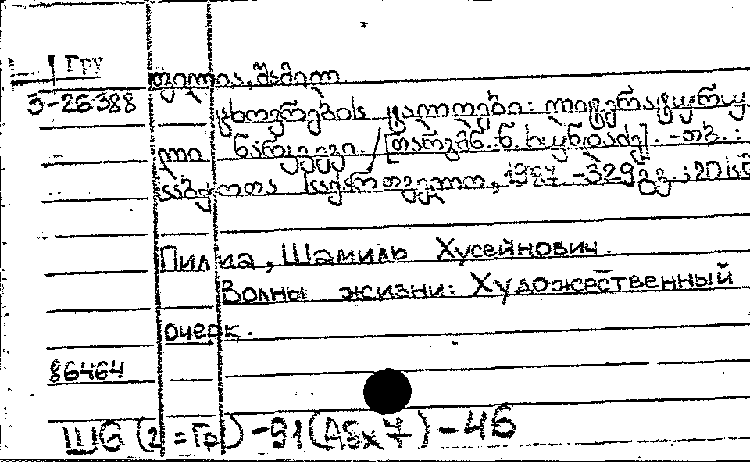 Гру
5-26388
ფილია, შამილ
ცხოვრების ტალღები: ლიტერატურუ
ლი ნარკვევი. [თარგმნ. ნ. ხუნდაძე]. -თბ.:
საბჭოთა საქართველო, 1987 -329გვ.; 20სმ
Пилиа, Шамиль Хусейнович.
Волны жизни: Художественный
очерк.
86464
Ш6 (2 = Гр) -91(Абх7) -46